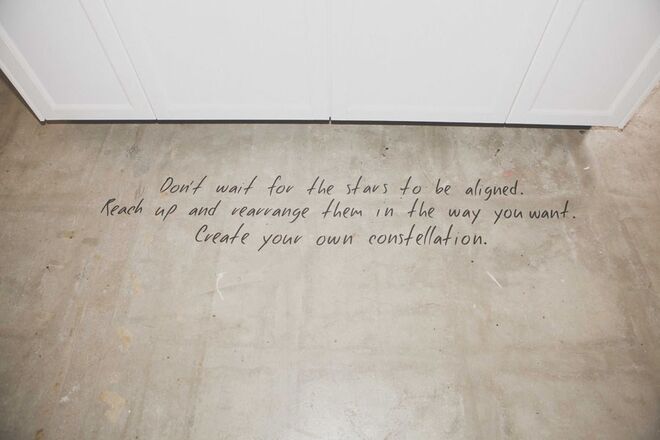 Don't wait for the stars to be aligned.
Reach up and rearrange them in the way you want.
Create your own constellation.